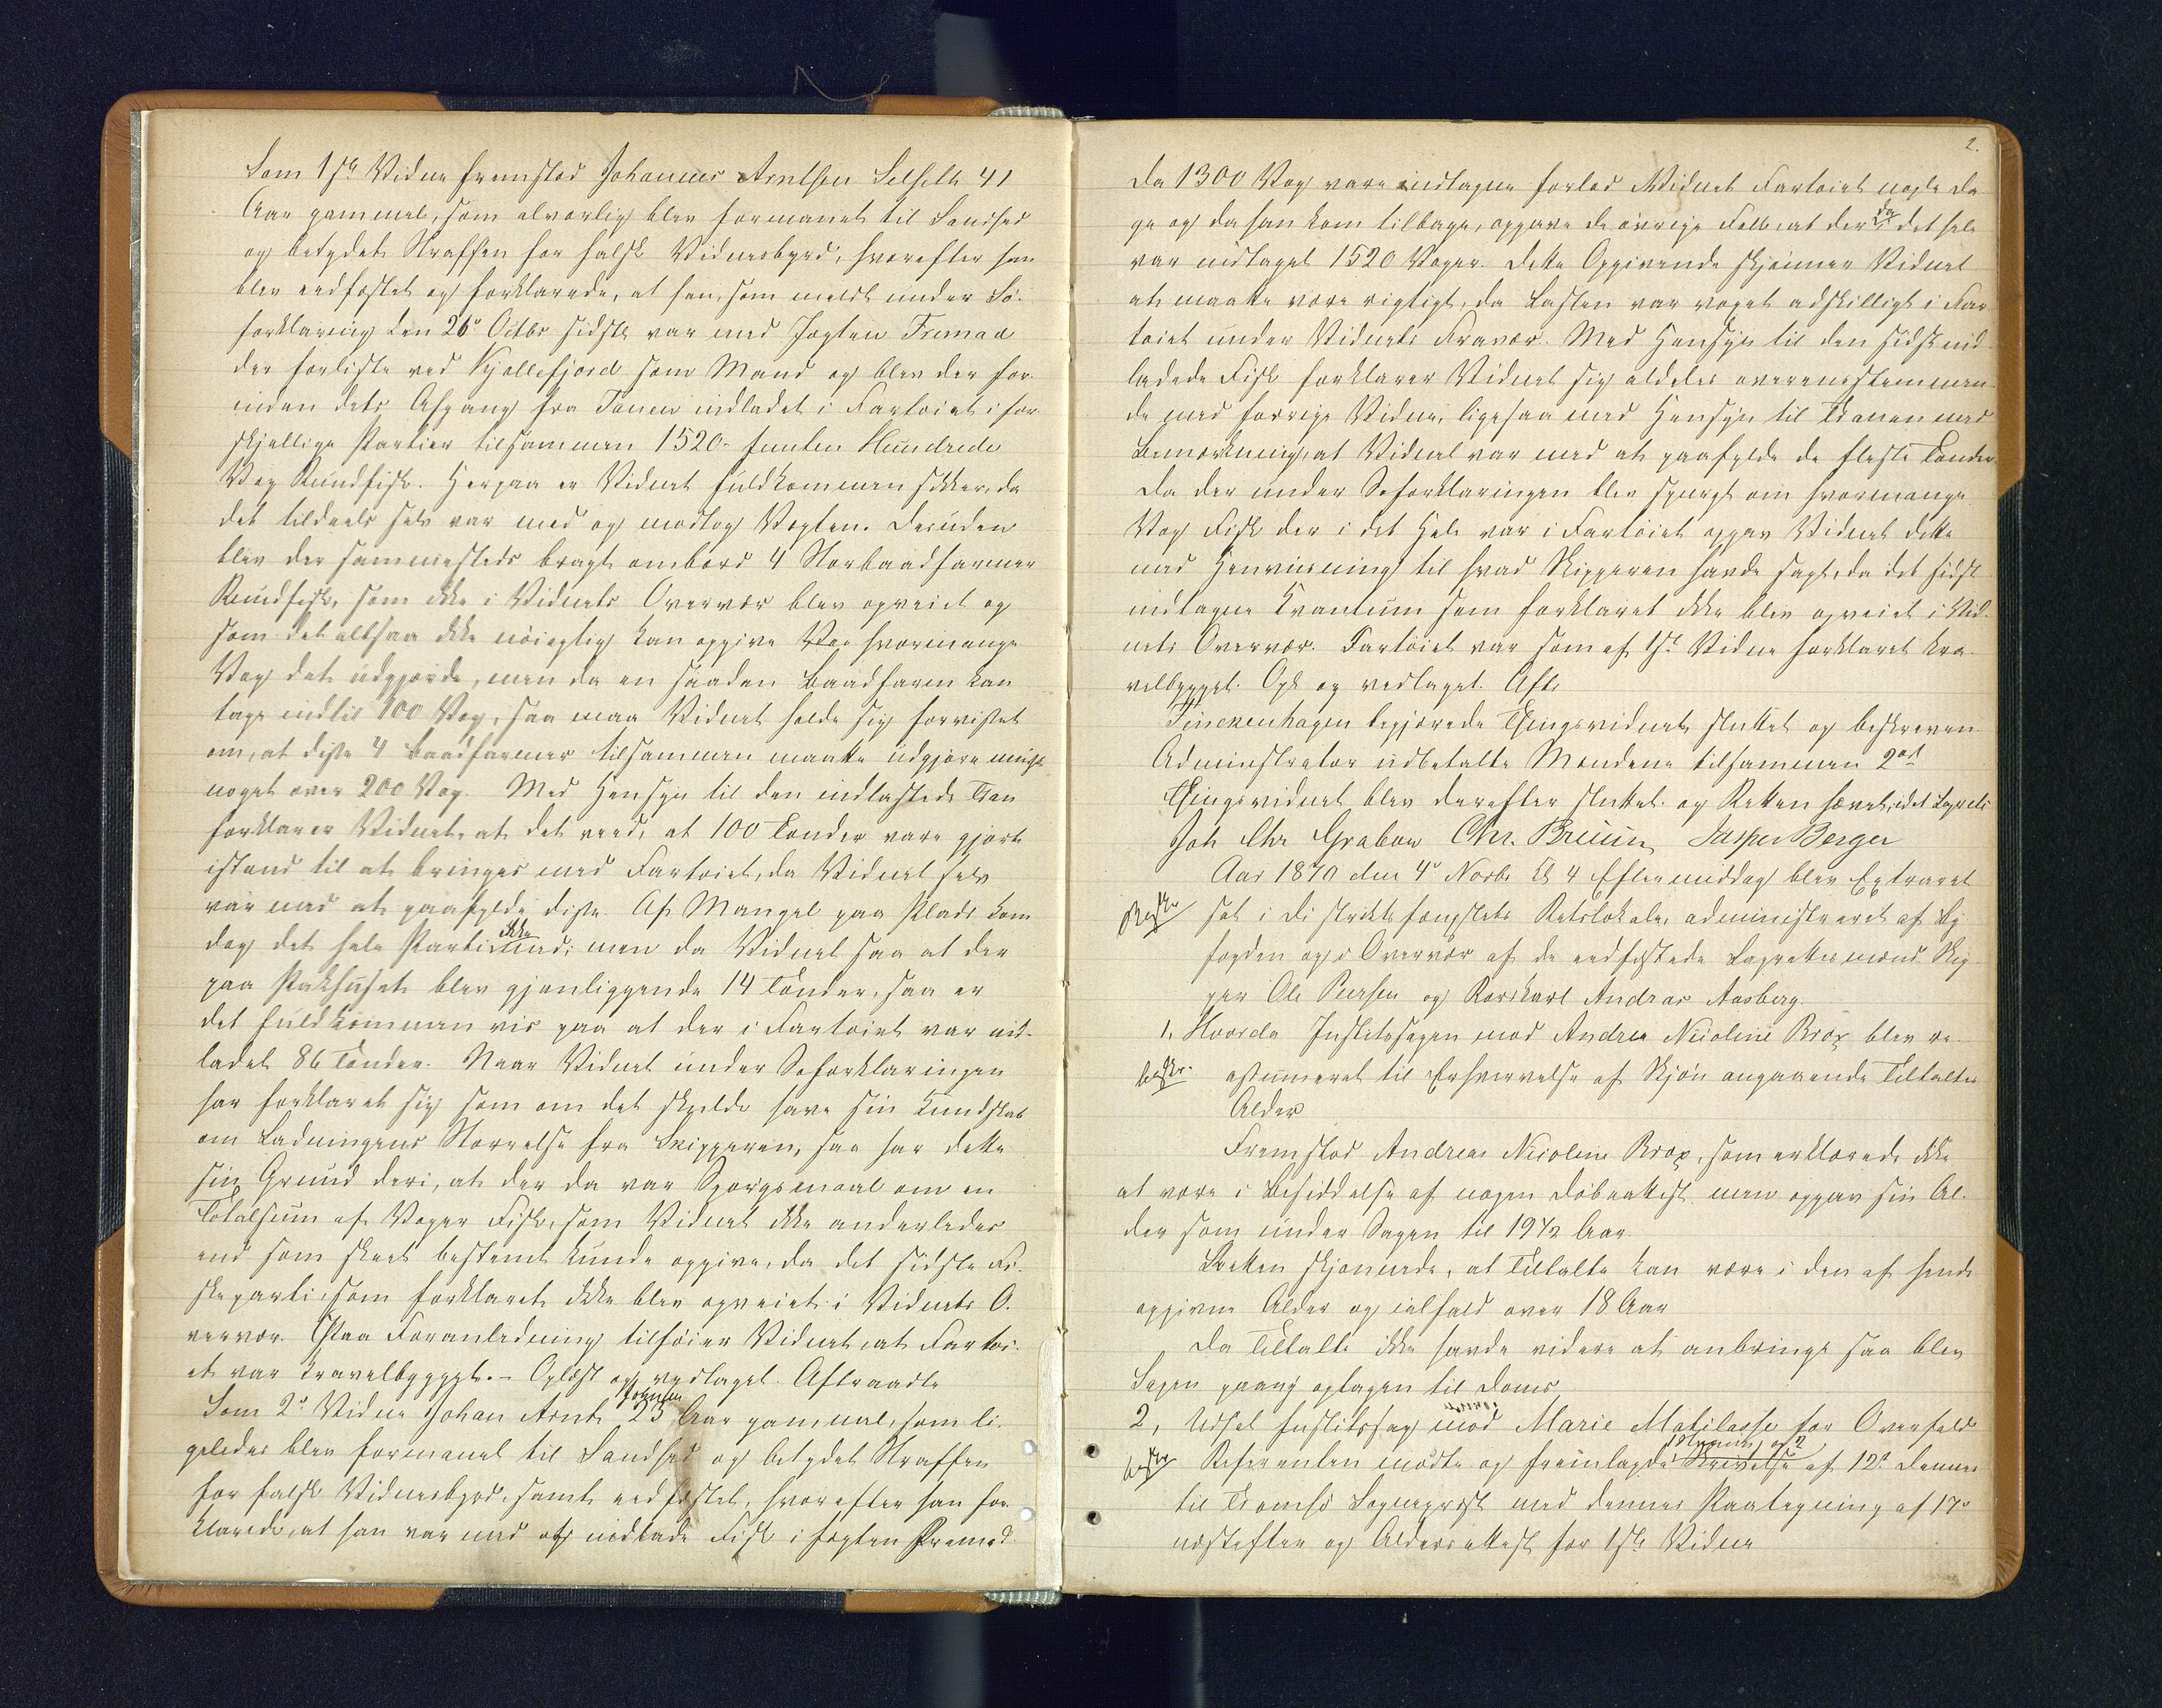 Som 1ste Vidne fremstod Johannes Arntsen Selseth 41
Aar gammel, som alvorlig blev formanet til Sandhed
og betydet Straffen for falsk Vidnesbyrd, hvorefter han
blev eedfæstet og forklarede, at han, som meldt under Sø-
forklaring den 26de Octbr sidstl. var med Jagten Fremad
der forliste ved Kjøllefjord som Mand og blev der for-
inden dets Afgang fra Tanen indladet i Fartøiet i for-
skjellige Partier tilsammen 1520 - femten Hundrede
Vog Rundfisk. Herpaa er Vidnet fuldkommen sikker, da
det tildeels selv var med og modtog Vægten. Desuden
blev der sammesteds bragt ombord 4 Storbaadfarmer
Rundfisk, som ikke i Vidnets Overvær blev opveiet og
som det altsaa ikke nøiagtig kan opgive hvormange
Vog det udgjorde, men da en saadan Baadfarm kan
tage indtil 100 Vog, saa maa Vidnet holde sig forvisset
om, at disse 4 Baadfarmer tilsammen maatte udgjøre
noget over 200 Vog. Med Hensyn til den indlastede Tran
forklarer Vidnet, at det veed, at 100 Tønder vare gjort
istand til at bringes med Fartøiet, da Vidnet selv
var med at paafylde disse. Af Mangel paa Plads kom
dog det hele Parti ikke med; men da Vidnet saa at der
paa Pakhuset blev gjenliggende 14 Tønder, saa er
det fuldkommen vis paa at der i Fartøiet var ind-
ladet 86 Tønder. Naar Vidnet under Søforklaringen
har forklaret sig som om det skulde have sin Kundskab
om Ladningens Størrelse fra Skipperen, saa har dette
sin Grund deri, at der da var Spørgsmaal om en
Totalsum af Voger Fisk, som Vidnet ikke anderledes
end som skeet bestemt kunde opgive, da det sidste Fi-
skeparti, som forklaret, ikke blev opveiet i Vidnets O-
vervær. Paa Foranledning tilføier Vidnet at Fartøi-
et var kravelbygget. - Oplæst og vedtaget. Aftraadte
Som 2det Vidne Johan Arnt Johnsen 23 Aar gammel, som li-
geledes blev formanet til Sandhed og betydet Straffen
for falsk Vidnesbyrd, samt eedfæstet, hvorefter han for-
klarede, at han var med at indlade Fisk i Jagten Fremad.
2.
Da 1300 Vog vare indtagne forlod Vidnet Fartøiet nogle Da-
ge og da han kom tilbage, opgave de øvrige Folk, at der da i det hele
var indtaget 1520 Voger. Dette Opgivende skjønner Vidnet
at maatte være rigtigt, da Lasten var voxet adskilligt i Far-
tøiet under Vidnets Fravær. Med Hensyn til den sidst ind-
ladede Fisk forklarer Vidnet sig aldeles overensstemmen-
de med forrige Vidne, ligesaa med Hensyn til Tranen med
Bemærkning, at Vidnet var med at paafylde de fleste Tønder.
Da der under Søforklaringen blev spurgt om hvormange
Vog Fisk der i det Hele var i Fartøiet opgav Vidnet dette
med Henvisning til hvad Skipperen havde sagt, da det sidst
indtagne Kvantum som forklaret ikke blev opveiet i Vid-
nets Overvær. Fartøiet var som af 1ste Vidne forklaret kra-
velbygget. Opl. og vedtaget. Aftr.
Finckenhagen begjærede Thingsvidnet sluttet og beskreven
Administrator udbetalte Mændene tilsammen 2 ort
Thingsvidnet blev derefter sluttet og Retten hævet.
Joh Chr Grabow Chr. Bruun Jasper Berger
Aar 1870 den 4de Novbr Kl 4 Eftermiddag blev Extraret
sat i Distriktsfængslets Retslokale, administreret af By-
fogden og i Overvær af de eedfæstede Lagrettesmænd Skip-
per Ole Peersen og Rorskarl Andreas Aasberg.
1. Hvorda Justitssagen mod Andrea Nicoline Brox blev re-
beskr.
assumeret til Erhvervelse af Skjøn angaaende Tiltaltes
Alder
Fremstod Andrea Nicoline Brox, som erklærede ikke
at være i Besiddelse af nogen Døbeattest, men opgav sin Al-
der som under Sagen til 19 1/2 Aar.
Retten skjønnede, at Tiltalte kan være i den af hende
opgivne Alder og ialfald over 18 Aar
Da Tiltalte ikke havde videre at anbringe saa blev
Sagen paany optagen til Doms
2, Udsat Justitssag mod Marie Matilasse for Overfald
beskr.
Referenten mødte og fremlagde Skrivelse af 12te dennes
til Tromsø Sogneprest med dennes Paategning af 17de
næstefter og Aldersattest for 1ste Vidne